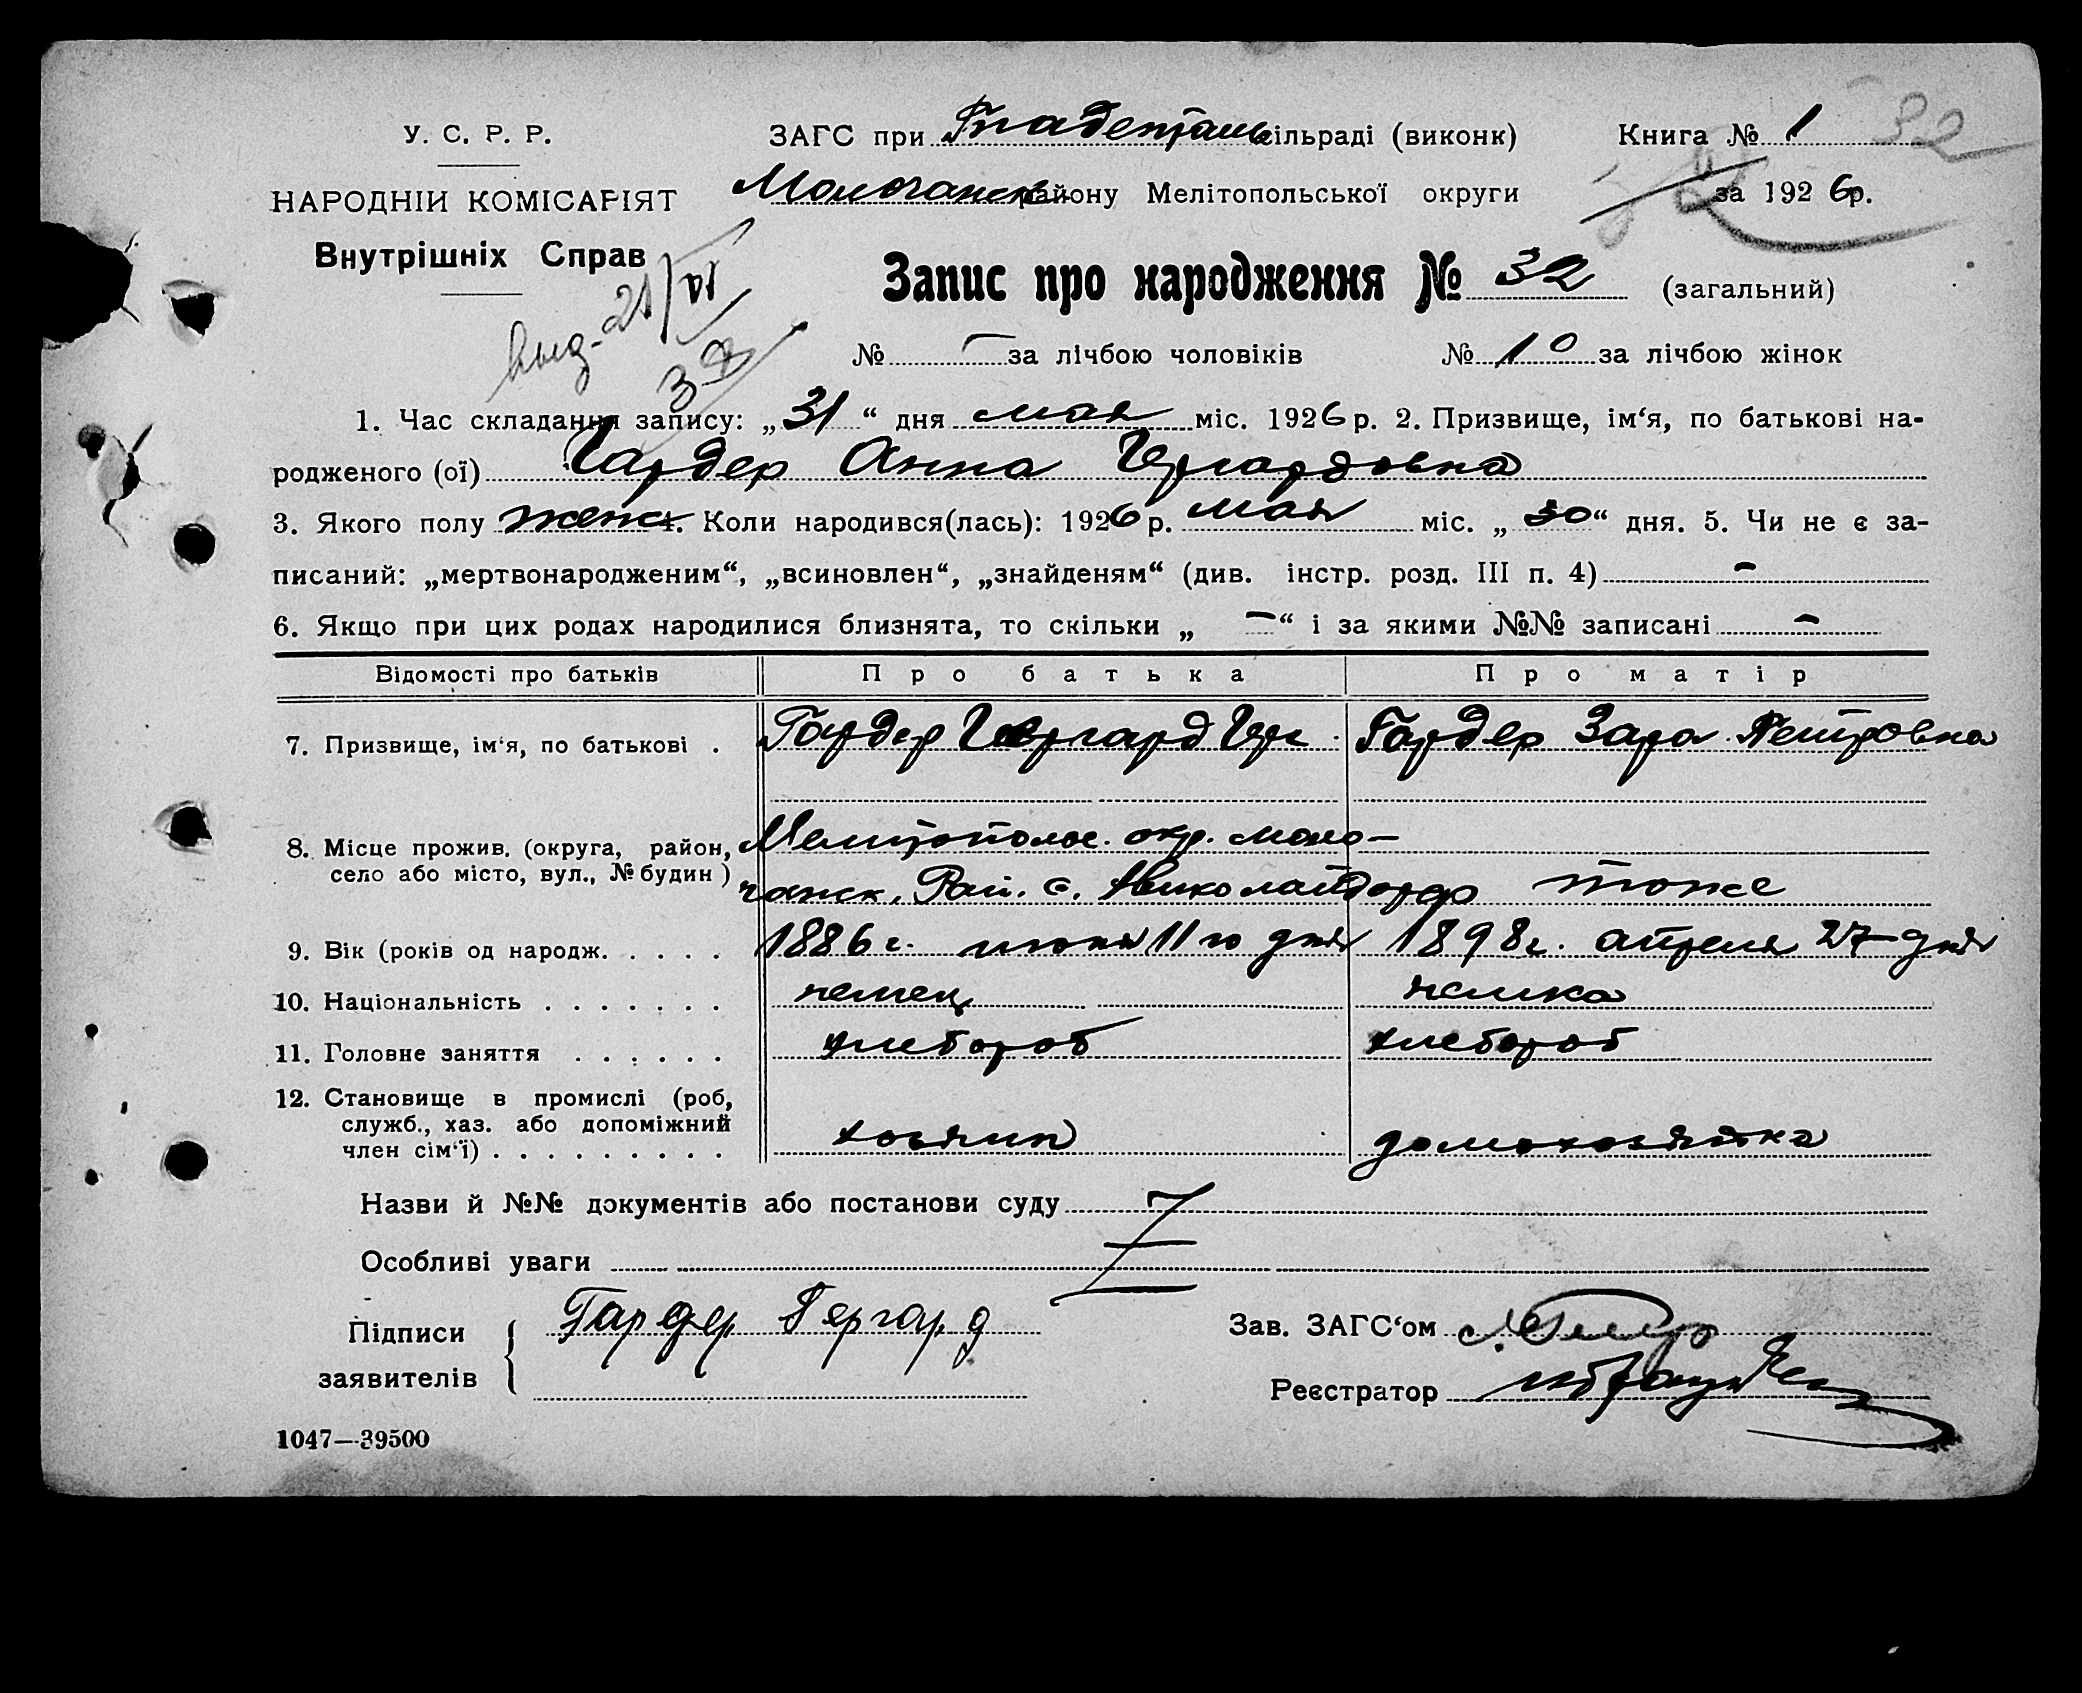 У. С. Р. Р.
НАРОДНІЙ КОМІСАРІЯТ
Внутрішніх Справ
ЗАГС при Гнаденталь сільраді (виконк) Книга № 1 32
Молочанск району Мелітопольської округи за 1926р.
Запис про народження № 32 (загальний)
выд. 21/VI
№ — за лічбою чоловіків № 10 за лічбою жінок
1. Час складання запису: „31“ дня мая міс. 1926 р. 2. Призвище, ім‘я, по батькові на-
родженого (ої) Гардер Анна Гергардовна
3. Якого полу женск 4. Коли народився(лась): 1926 р. мая міс. „30“ дня. 5. Чи не є за-
писаний: „мертвонародженим“, „всиновлен“, „знайденям“ (див. інстр. розд. III п. 4) -
6. Якщо при цих родах народилися близнята, то скільки „ — “ і за якими №№ записані -
Відомості про батьків Про батька Про матір
7. Призвище, ім‘я, по батькові . Гардер Гергард Гер. Гардер Зара Петровна
8. Місце прожив. (округа, район, Мелитополь. окр. Моло-
село або місто, вул., № будин) чанск. Рай. с. Николайдорф тоже
9. Вік (років од народж. . . . . 1886 г. июня 11 го дня 1898 г. апреля 27 дня
10. Національність . . . . . . . немец немка
11. Головне заняття . . . . . . хлебороб хлебороб
12. Становище в промислі (роб,
служб., хаз. або допоміжний
член сім‘ї) . . . . . . . . . хозяин домохозяйка
Назви й №№ документів або постанови суду
Особливі уваги
Підписи
заявителів
Гардер Гергард
Зав. ЗАГС‘ом
Реєстратор
1047—39500